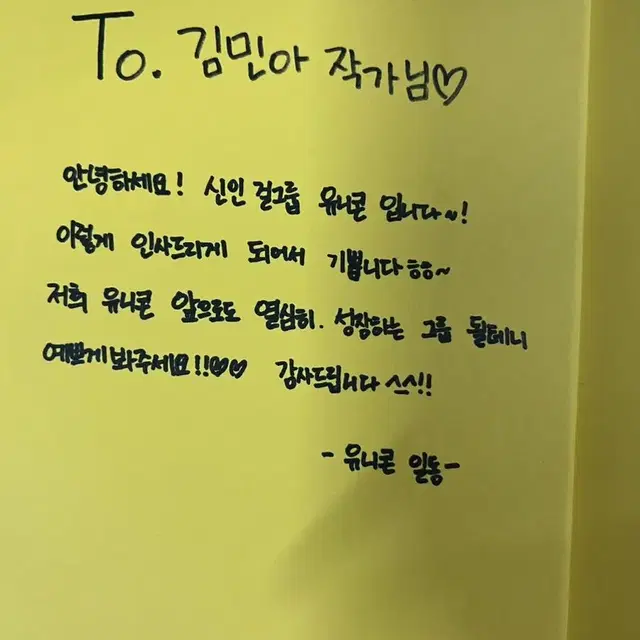 To. 김민아 작가님♡
안녕하세요! 신인 걸그룹 유니콘 입니다~!
이렇게 인사드리게 되어서 기쁩니다ㅎㅎ~
저희 유니콘 앞으로도 열심히. 성장하는 그룹 될테니
예쁘게 봐주세요!!♥♥ 감사드립니다 ^^!!
- 유니콘 일동 -